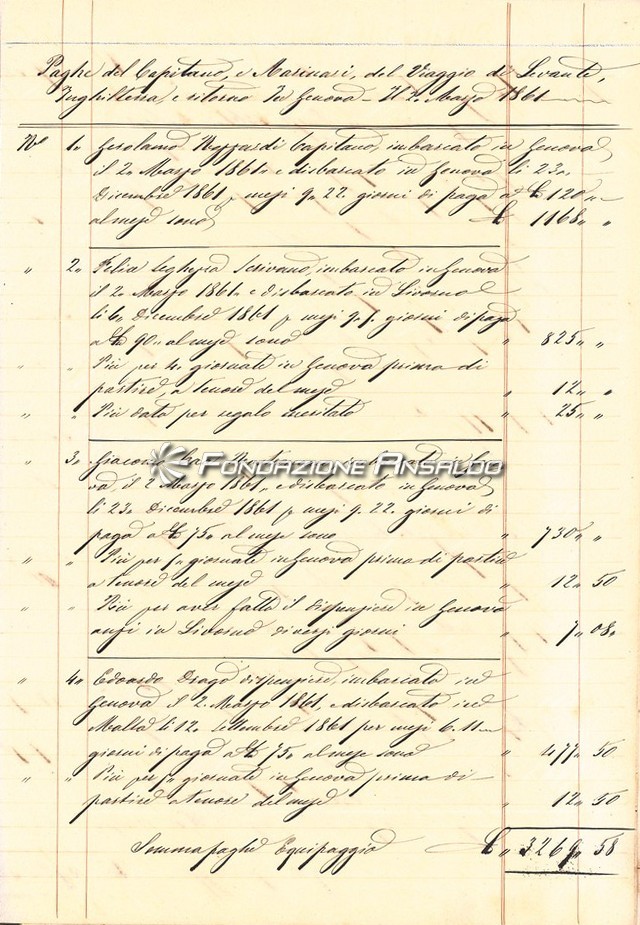 Paghe del Capitano, e Marinari, del Viaggio di Levante,
Inghilterra, e ritorno In Genova - Il 2. Marzo 1861
No 1. Gerolamo Capitano, imbarcato in Genova
il 2. Marzo 1861. e disbarcato in Genova li 23.
Dicembre 1861, p mesi 9. 22. giorni di paga a £ 120 "
al mese sono £ 1168 " "
" 2. Felice Scrivano, imbarcato in Genova
il 2. Marzo 1861. e disbarcato in Livorno
li 6. Dicembre 1861 p mesi 9. 5. giorni di paga
a £ 90 " al mese sono " 825 " "
" " Più per 4. giornate in Genova prima di
partire, a tenore del mese " 12 " "
" " Più dati per regalo meritato " 25 " "
" 3. Giacomo imbarcato in Geno-
FONDAZIONE ANSALDO
va, il 2 Marzo 1861, e disbarcato in Genova
li 23. Dicembre 1861 p mesi 9. 22. giorni di
paga a £ 75 " al mese sono " 730 " "
" " Più per 5 " giornate in Genova prima di partire
a tenore del mese " 12 " 50
" " Più per aver fatto il dispensiere in Genova
anzi in Livorno diversi giorni " 7 " 08 "
" 4. Edoardo Drago dispensiere, imbarcato in
Genova il 2. Marzo 1861, e disbarcato in
Malta li 12. Settembre 1861 per mesi 6. 11
giorni di paga a £ 75 " al mese sono " 477 " 50
" " Più per 5 " giornate in Genova prima di
partire a tenore del mese " 12 " 50
Somma paghe Equipaggio £ " 3269 " 58